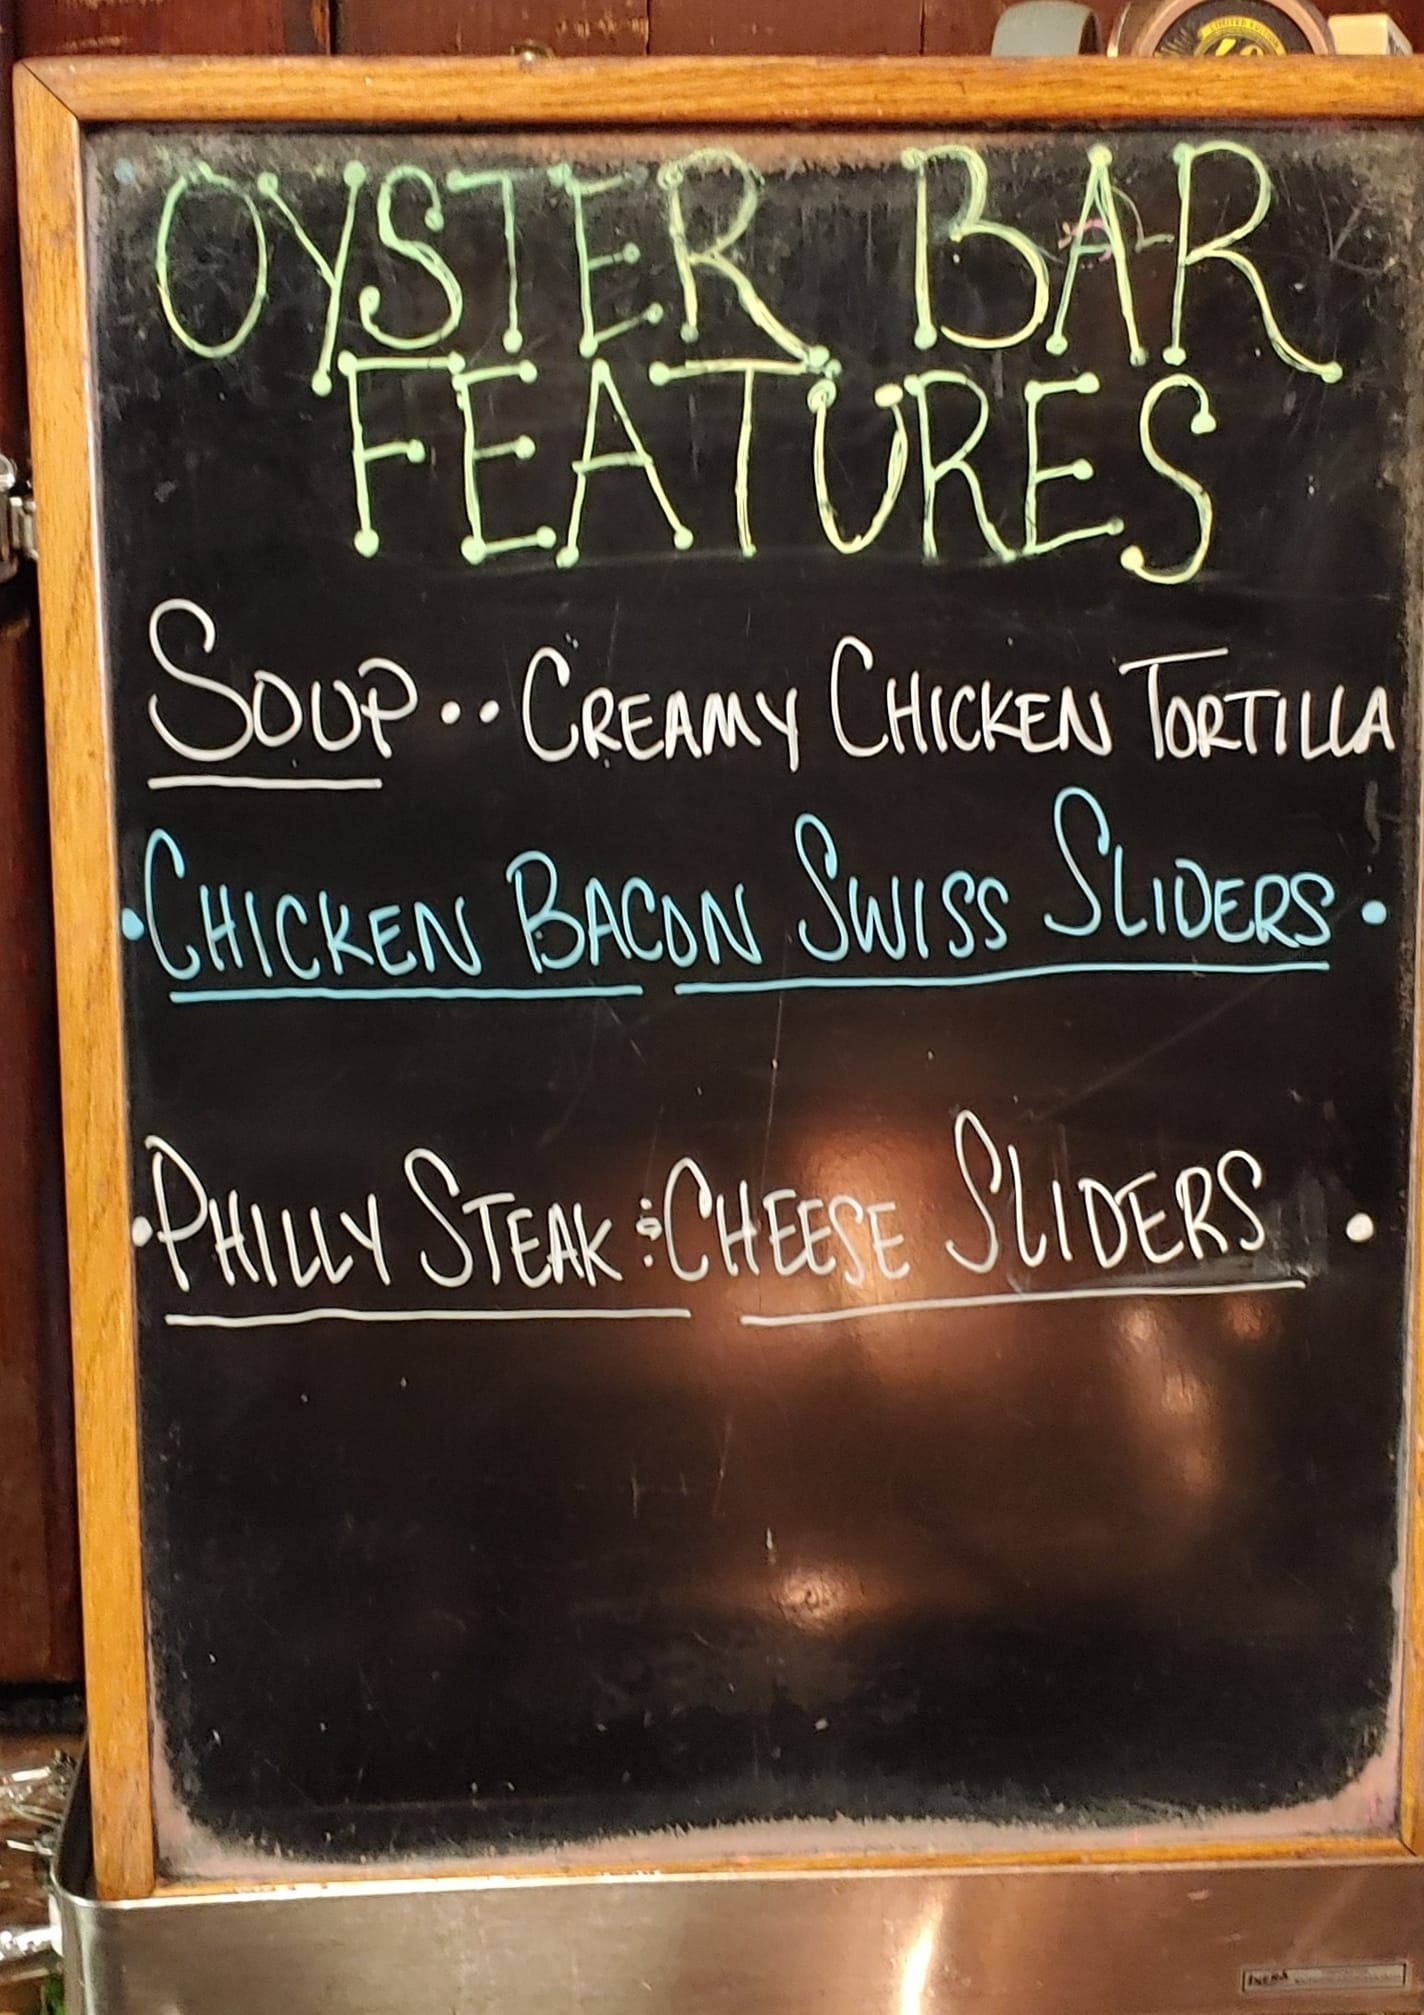 OYSTER BAR
FEATURES
SOUP.. CREAMY CHICKEN TORTILLA
• CHICKEN BACON SWISS SLIDERS •
• PHILLY STEAK & CHEESE SLIDERS •
LIMITED EDITION